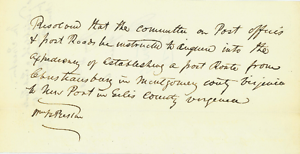 Resolved that the committee on Post offices
& post Roads be instructed to enquire into the
expediency of Establishing a post Route from
Christiansburg in Montgomery county Virginia
to New Port in Giles County virginia